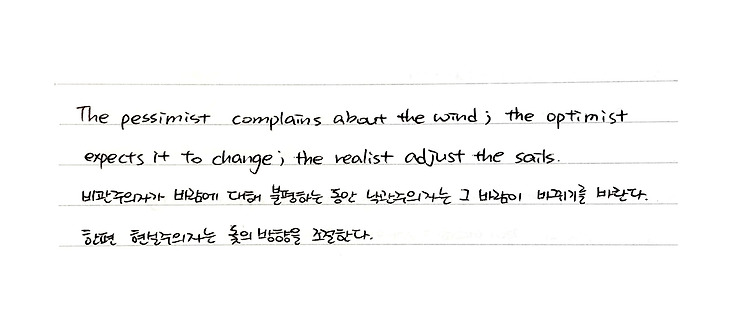 The pessimist complains about the wind; the optimist
expects it to change; the realist adjust the sails.
비관주의자가 바람에 대해 불평하는 동안 낙관주의자는 그 바람이 바뀌기를 바란다.
한편 현실주의자는 돛의 방향을 조절한다.